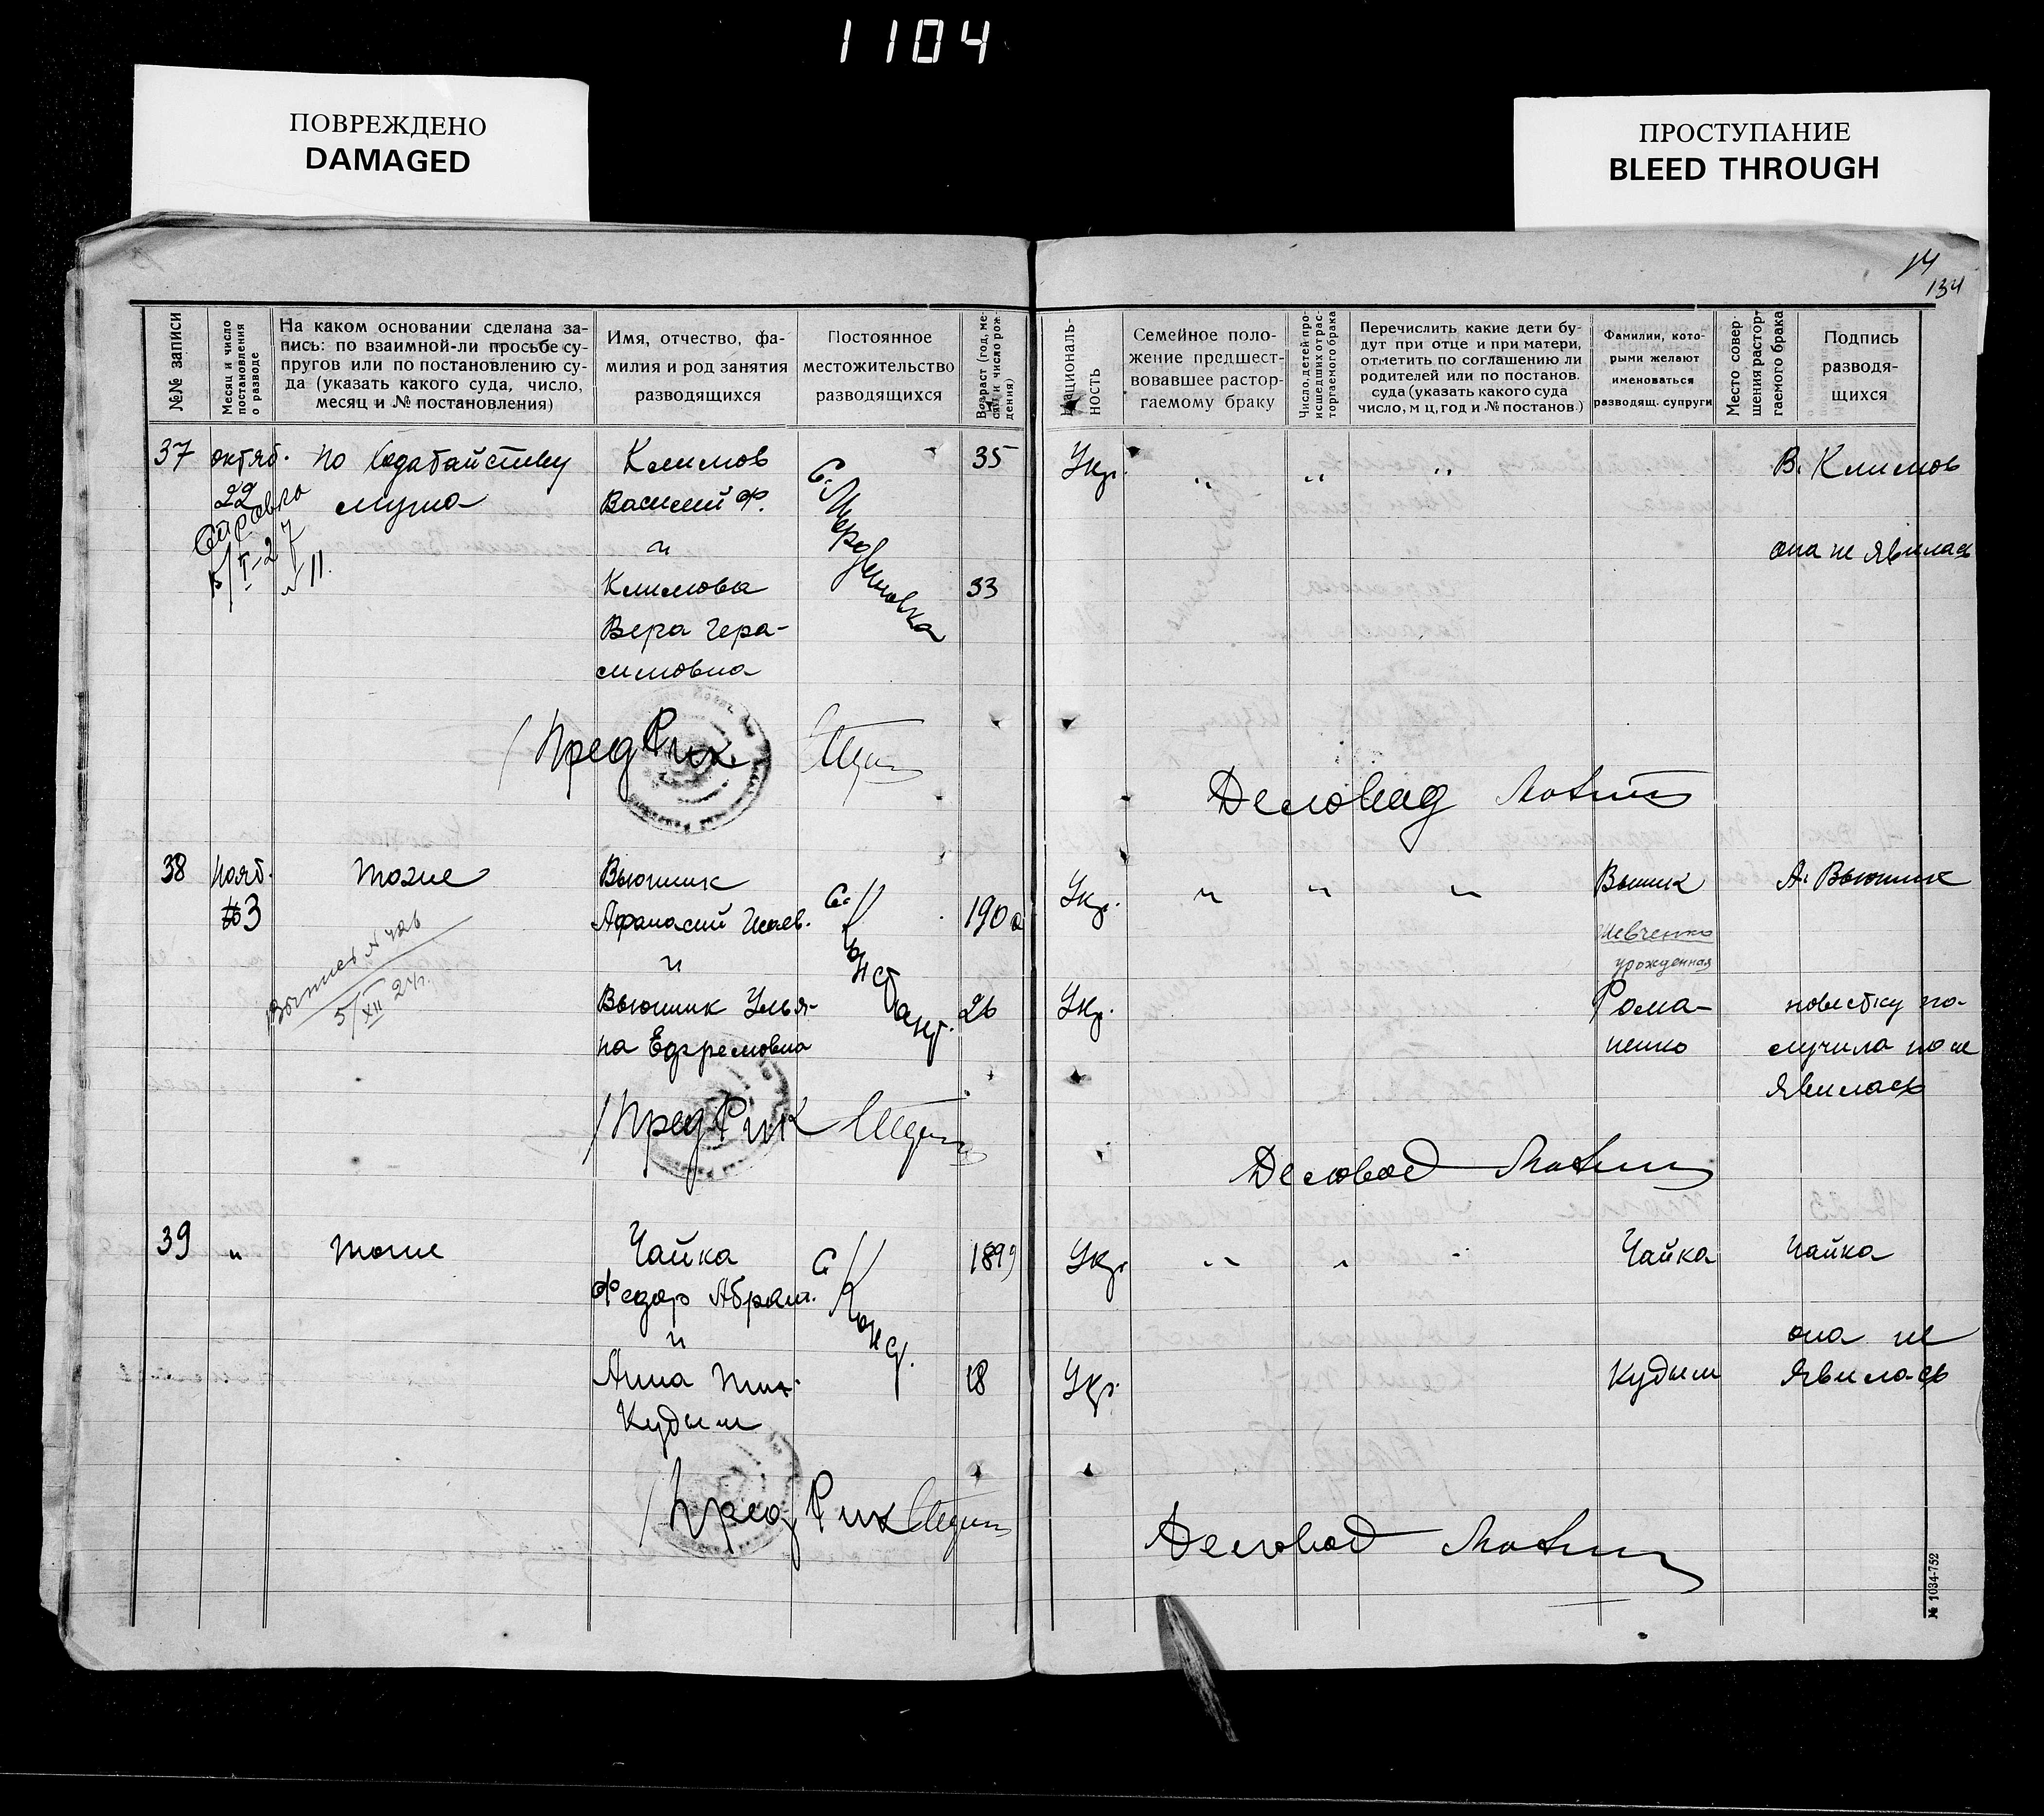 1104
ПОВРЕЖДЕНО
DAMAGED
ПРОСТУПАНИЕ
BLEED THROUGH
14
134
№№ записи
Месяц и число
постановления
о разводе
На каком основании сделана за-
пись: по взаимной-ли просьбе су-
пругов или по постановлению су-
да (указать какого суда, число,
месяц и № постановления)
Имя, отчество, фа-
милия и род занятия
разводящихся
Постоянное
местожительство
разводящихся
Возраст (год, ме-
сяц и число рож-
дения)
Националь-
ность
Семейное поло-
жение предшест-
вовавшее растор-
гаемому браку
Число детей про-
исшедших от рас-
торгаемого брака
Перечислить, какие дети бу-
дут при отце и при матери,
отметить по соглашению ли
родителей или по постанов.
суда (указать какого суда
число, м-ц, год и № постанов.)
Фамилии, кото-
рыми желают
именоваться
разводящ. супруги
Место совер-
шения растор-
гаемого брака
Подпись
разводя-
щихся
37
октяб.
22
Справка
№ 11.
По ходатайству
мужа
Климов
Василий Ф.
и
Климова
Вера Гера-
симовна
35
33
Укр.
" " "
В. Климов
она не явилась
Пред Рик
Деловод
38
Нояб.
3
тоже
5/XII 24г.
Вьюшик
и
Вьюшик Улья-
на Ефремовна
с. Констант.
1900
26
Укр.
" " "
Укр.
Шевченко
урожденная
Рома-
ненко
А. Вьюшик
повестку по-
лучила но не
явилась
Пред Рик
Деловод
39
"
тоже
Чайка
Федор Абрам.
и
Анна Тим.
Кудым
с. Конст.
1899
18
Укр.
" " "
Укр.
Чайка
Кудым
Чайка
она не
явилась
Пред Рик
Деловод
№ 1034-752